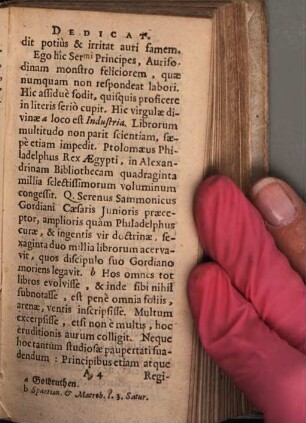 DEDICAT.
dit potiùs & irritat auri famem.
Ego hîc Sermi Principes, Aurifo-
dinam monstro feliciorem, quæ
numquam non respondeat labori.
Hîc assiduè fodit, quisquis proficere
in literis seriò cupit. Hîc virgulæ di-
vinæ a loco est Industria. Librorum
multitudo non parit scientiam, sæ-
pè etiam impedit. Ptolomæus Phi-
ladelphus Rex Ægypti, in Alexan-
drinam Bibliothecam quadraginta
millia selectissimorum voluminum
congessit. Q. Serenus Sammonicus
Gordiani Cæsaris Junioris præce-
ptor, ampliori quàm Philadelphus
curæ, & ingentis vir doctrinæ, se-
xaginta duo millia librorum acerva-
vit, quos discipulo suo Gordiano
moriens legavit. b Hos omnes tot
libros evolvisse, & inde sibi nihil
subnotasse, est penè omnia foliis,
arenæ, ventis inscripsisse. Multum
excerpsisse, etsi non è multis, hoc
eruditionis aurum colligit. Neque
hoc tantùm studiosæ paupertati sua-
dendum: Principibus etiam atque
A 4 Regi-
a Goltruthen.
b Spartian. & Macrob. l. 3. Satur.